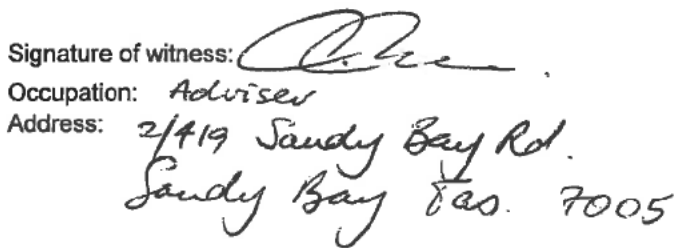 Signature of witness:
Occupation: Adviser
Address: 2/419 Sandy Bay Rd.
Sandy Bay Tas. 7005